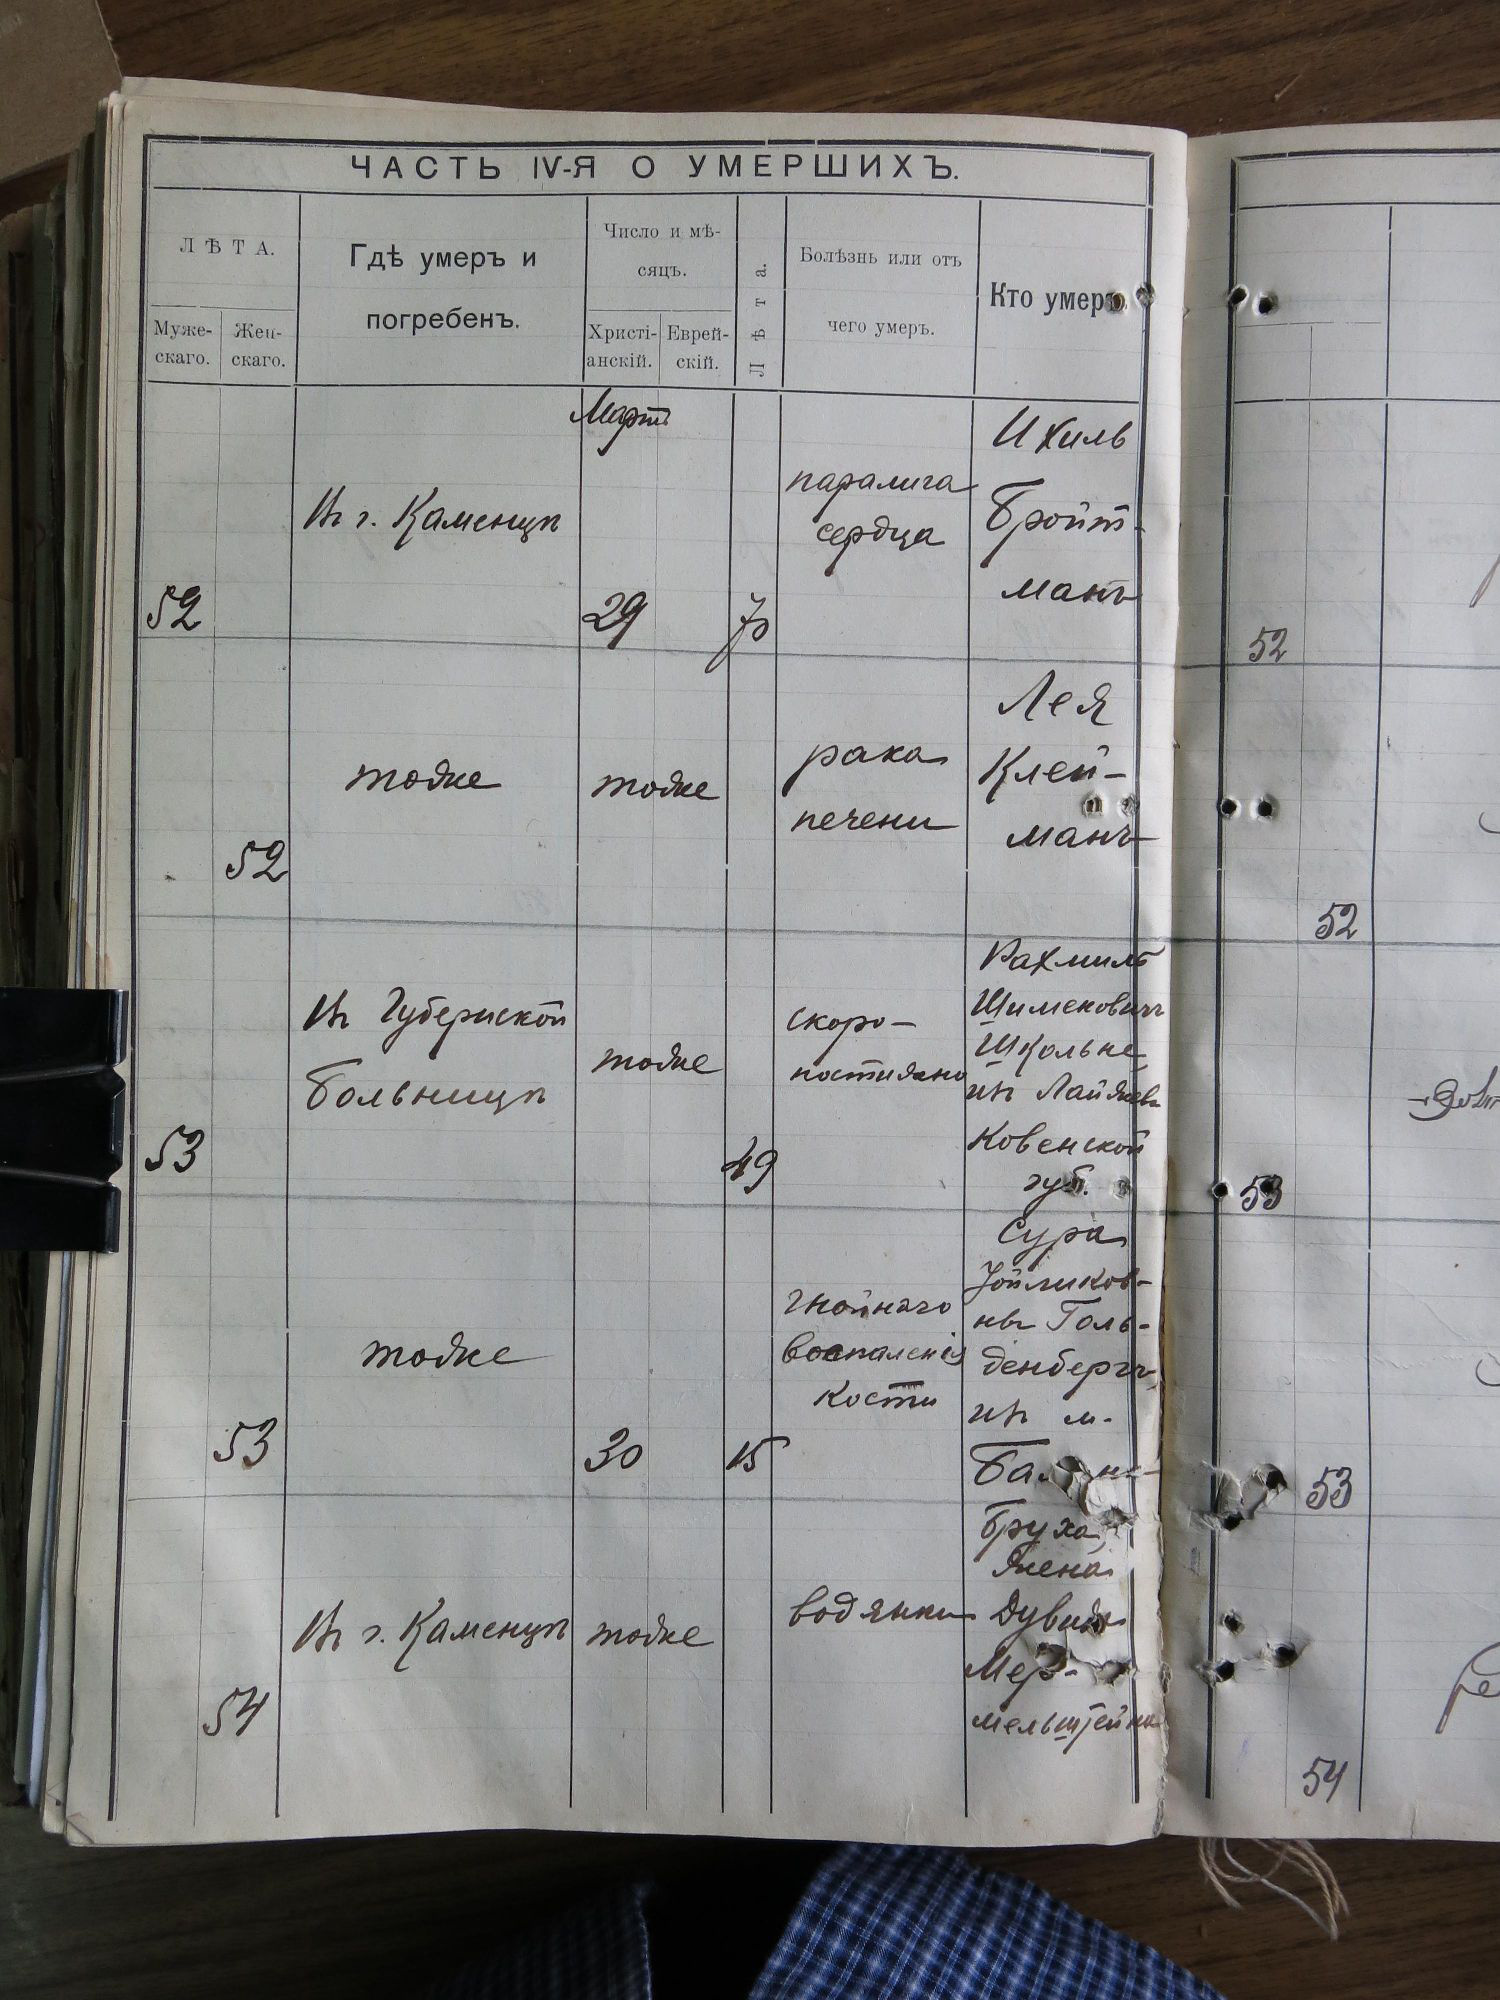 ЧАСТЬ IV-Я О УМЕРШИХЪ.
ЛѢТА.
Муже-
скаго.
Жен-
скаго.
Гдѣ умеръ и
погребенъ.
Число и мѣ-
сяцъ.
Христі-
анскій.
Еврей-
скій.
Лѣта.
Болѣзнь или отъ
чего умеръ.
Кто умеръ.
Мартъ
52
Въ г. Каменцѣ
29
70
паралича
сердца
Ихиль
Бройт-
манъ
52
тоже
тоже
рака
печени
Лея
Клей-
манъ
53
Въ Губернской
больницѣ
тоже
49
скоро-
постижно
Рахмиль
Шименовичъ
Школьне
изъ
Ковенской
губ.
53
тоже
30
15
гнойнаго
воспаленія
кости
Сура
Іойликов-
на Голь-
денбергъ,
изъ м.
54
Въ г. Каменцѣ
тоже
водянки
Бруха,
жена
Дувида
Мер-
мельштейна
52
52
53
53
54